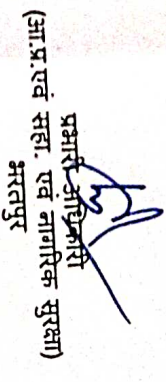 प्रभारी अधिकारी
(आ.प्र.एवं सहा. एवं नागरिक सुरक्षा)
भरतपुर